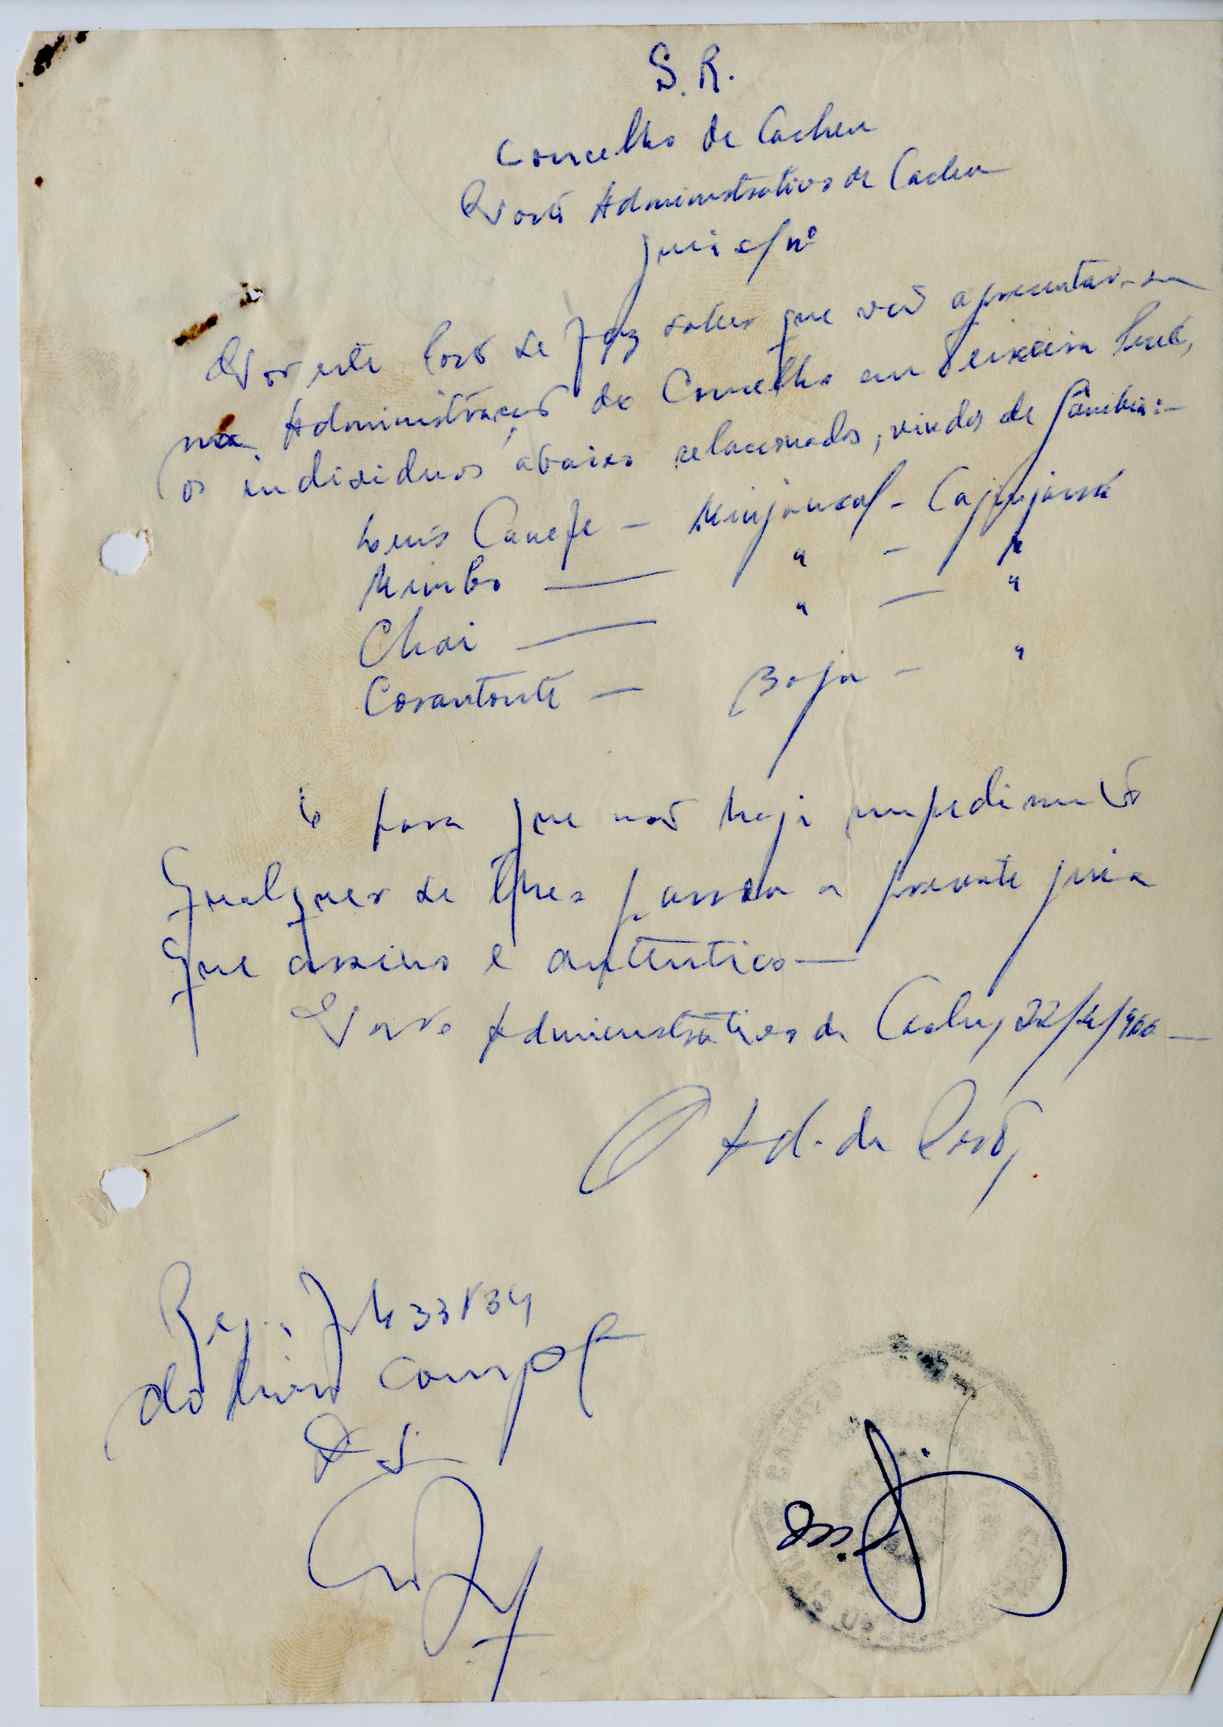 S. R.
Concelho de Cacheu
Posto Administrativo de Cacheu
Guia s/ nº
Por este Posto se faz saber que vão apresentar-se
na Administração do Concelho em Teixeira Pinto,
os individuos abaixo relacionados, vindos de Gâmbia:-
Luis Canefe —
Mimbo — " - "
Chai — " — "
— Boja - "
E para que não haja impedimento
qualquer se lhes passou a presente guia
que assino e autentico —
Posto Administrativo de Cacheu, 22/4/966 —
O Ad. de Posto,
do livro comp